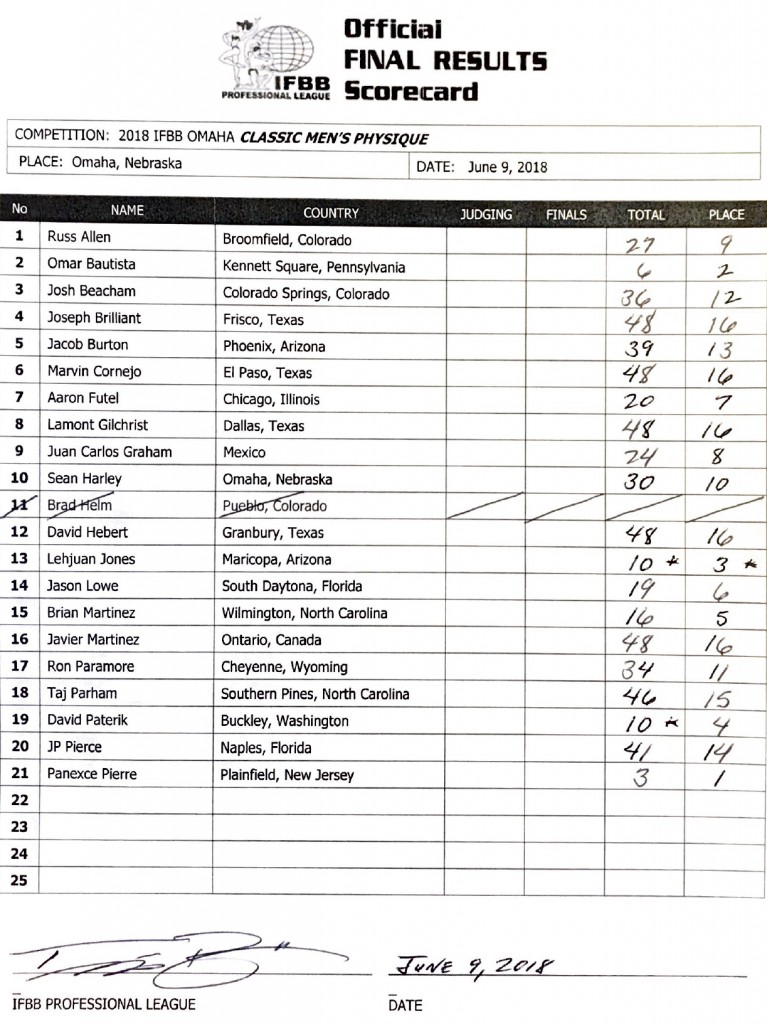 Official
FINAL RESULTS
Scorecard
IFBB
PROFESSIONAL LEAGUE
COMPETITION: 2018 IFBB OMAHA CLASSIC MEN'S PHYSIQUE
PLACE: Omaha, Nebraska DATE: June 9, 2018
No NAME COUNTRY JUDGING FINALS TOTAL PLACE
1 Russ Allen Broomfield, Colorado 27 9
2 Omar Bautista Kennett Square, Pennsylvania 6 2
3 Josh Beacham Colorado Springs, Colorado 36 12
4 Joseph Brilliant Frisco, Texas 48 16
5 Jacob Burton Phoenix, Arizona 39 13
6 Marvin Cornejo El Paso, Texas 48 16
7 Aaron Futel Chicago, Illinois 20 7
8 Lamont Gilchrist Dallas, Texas 48 16
9 Juan Carlos Graham Mexico 24 8
10 Sean Harley Omaha, Nebraska 30 10
11 Brad Helm Pueblo, Colorado
12 David Hebert Granbury, Texas 48 16
13 Lehjuan Jones Maricopa, Arizona 10 * 3 *
14 Jason Lowe South Daytona, Florida 19 6
15 Brian Martinez Wilmington, North Carolina 16 5
16 Javier Martinez Ontario, Canada 48 16
17 Ron Paramore Cheyenne, Wyoming 34 11
18 Taj Parham Southern Pines, North Carolina 46 15
19 David Paterik Buckley, Washington 10 * 4
20 JP Pierce Naples, Florida 41 14
21 Panexce Pierre Plainfield, New Jersey 3 1
22
23
24
25
JUNE 9, 2018
IFBB PROFESSIONAL LEAGUE DATE